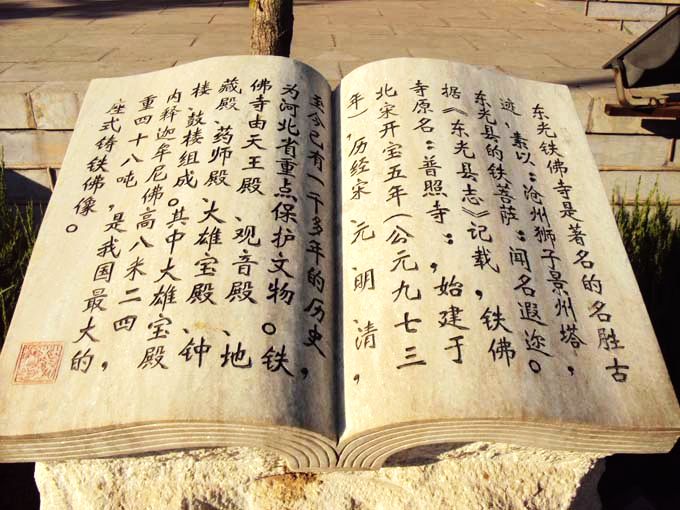 东光铁佛寺是著名的名胜古
迹，素以：沧州狮子景州塔，
东光县的铁菩萨：闻名遐迩。
据《东光县志》记载，铁佛
寺原名：普照寺：，始建于
北宋开宝五年（公元九七三
年），历经宋 元 明 清，
至今已有一千多年的历史，
为河北省重点保护文物。铁
佛寺由天王殿、观音殿、地
藏殿、药师殿、大雄宝殿、钟
楼、鼓楼组成。其中大雄宝殿
内释迦牟尼佛高八米二四
重四十八吨，是我国最大的，
座式铸铁佛像。